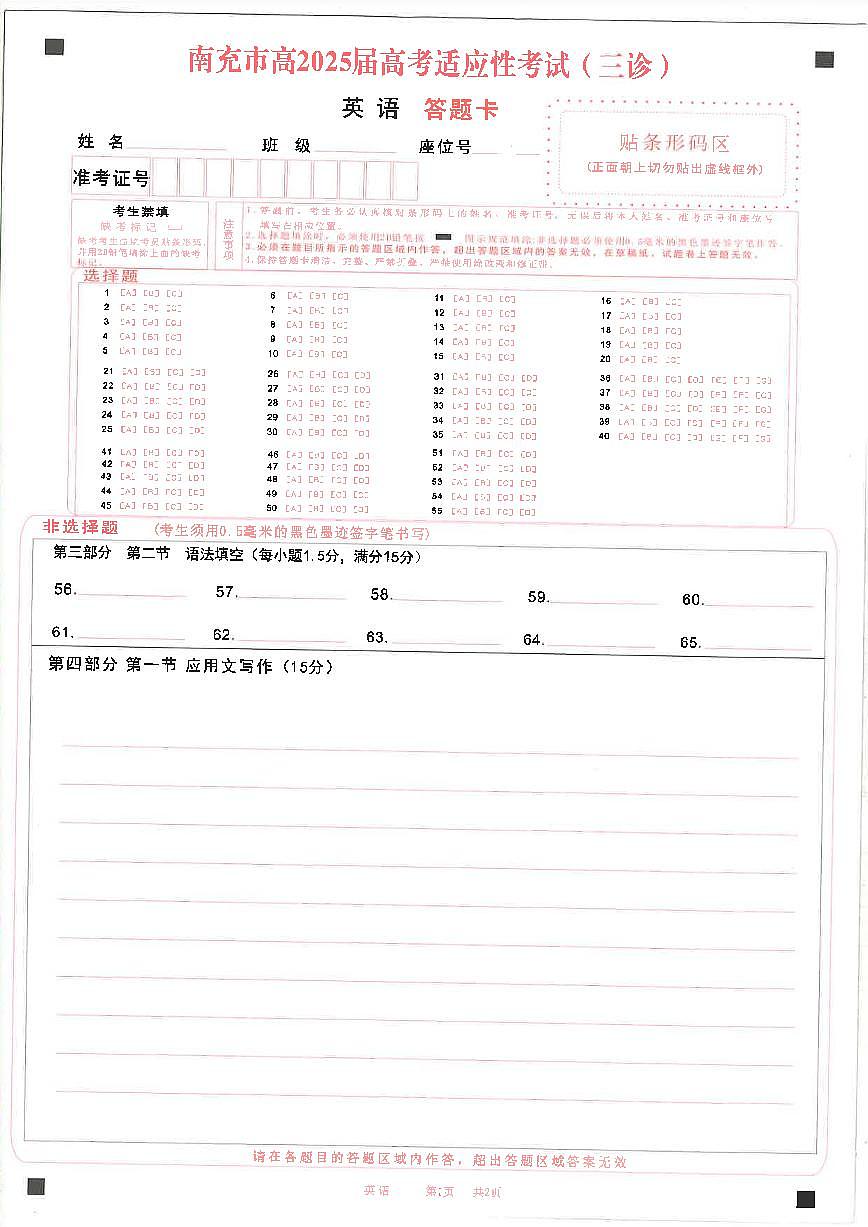 南充市高2025届高考适应性考试（三诊）
英 语 答题卡
姓 名 班 级 座位号
贴条形码区
(正面朝上切勿贴出虚线框外)
准考证号
考生禁填
缺考标记
缺考考生由监考员贴条形码,
并用2B铅笔填涂上面的缺考
标记。
注意事项
1.答题前，考生务必认真核对条形码上的姓名、准考证号，无误后将本人姓名、准考证号和座位号
填写在相应位置。
2.选择题填涂时，必须使用2B铅笔按 图示规范填涂;非选择题必须使用0.5毫米的黑色墨迹签字笔作答。
3.必须在题目所指示的答题区域内作答，超出答题区域内的答案无效，在草稿纸、试题卷上答题无效。
4.保持答题卡清洁、完整、严禁折叠，严禁使用涂改液和修正带。
选择题
1 [A] [B] [C] 6 [A] [B] [C] 11 [A] [B] [C] 16 [A] [B] [C]
2 [A] [B] [C] 7 [A] [B] [C] 12 [A] [B] [C] 17 [A] [B] [C]
3 [A] [B] [C] 8 [A] [B] [C] 13 [A] [B] [C] 18 [A] [B] [C]
4 [A] [B] [C] 9 [A] [B] [C] 14 [A] [B] [C] 19 [A] [B] [C]
5 [A] [B] [C] 10 [A] [B] [C] 15 [A] [B] [C] 20 [A] [B] [C]
21 [A] [B] [C] [D] 26 [A] [B] [C] [D] 31 [A] [B] [C] [D] 36 [A] [B] [C] [D] [E] [F] [G]
22 [A] [B] [C] [D] 27 [A] [B] [C] [D] 32 [A] [B] [C] [D] 37 [A] [B] [C] [D] [E] [F] [G]
23 [A] [B] [C] [D] 28 [A] [B] [C] [D] 33 [A] [B] [C] [D] 38 [A] [B] [C] [D] [E] [F] [G]
24 [A] [B] [C] [D] 29 [A] [B] [C] [D] 34 [A] [B] [C] [D] 39 [A] [B] [C] [D] [E] [F] [G]
25 [A] [B] [C] [D] 30 [A] [B] [C] [D] 35 [A] [B] [C] [D] 40 [A] [B] [C] [D] [E] [F] [G]
41 [A] [B] [C] [D] 46 [A] [B] [C] [D] 51 [A] [B] [C] [D]
42 [A] [B] [C] [D] 47 [A] [B] [C] [D] 52 [A] [B] [C] [D]
43 [A] [B] [C] [D] 48 [A] [B] [C] [D] 53 [A] [B] [C] [D]
44 [A] [B] [C] [D] 49 [A] [B] [C] [D] 54 [A] [B] [C] [D]
45 [A] [B] [C] [D] 50 [A] [B] [C] [D] 55 [A] [B] [C] [D]
非选择题 (考生须用0.5毫米的黑色墨迹签字笔书写)
第三部分 第二节 语法填空（每小题1.5分，满分15分）
56. 57. 58. 59. 60.
61. 62. 63. 64. 65.
第四部分 第一节 应用文写作（15分）
请在各题目的答题区域内作答，超出答题区域答案无效
英语 第1页 共2页